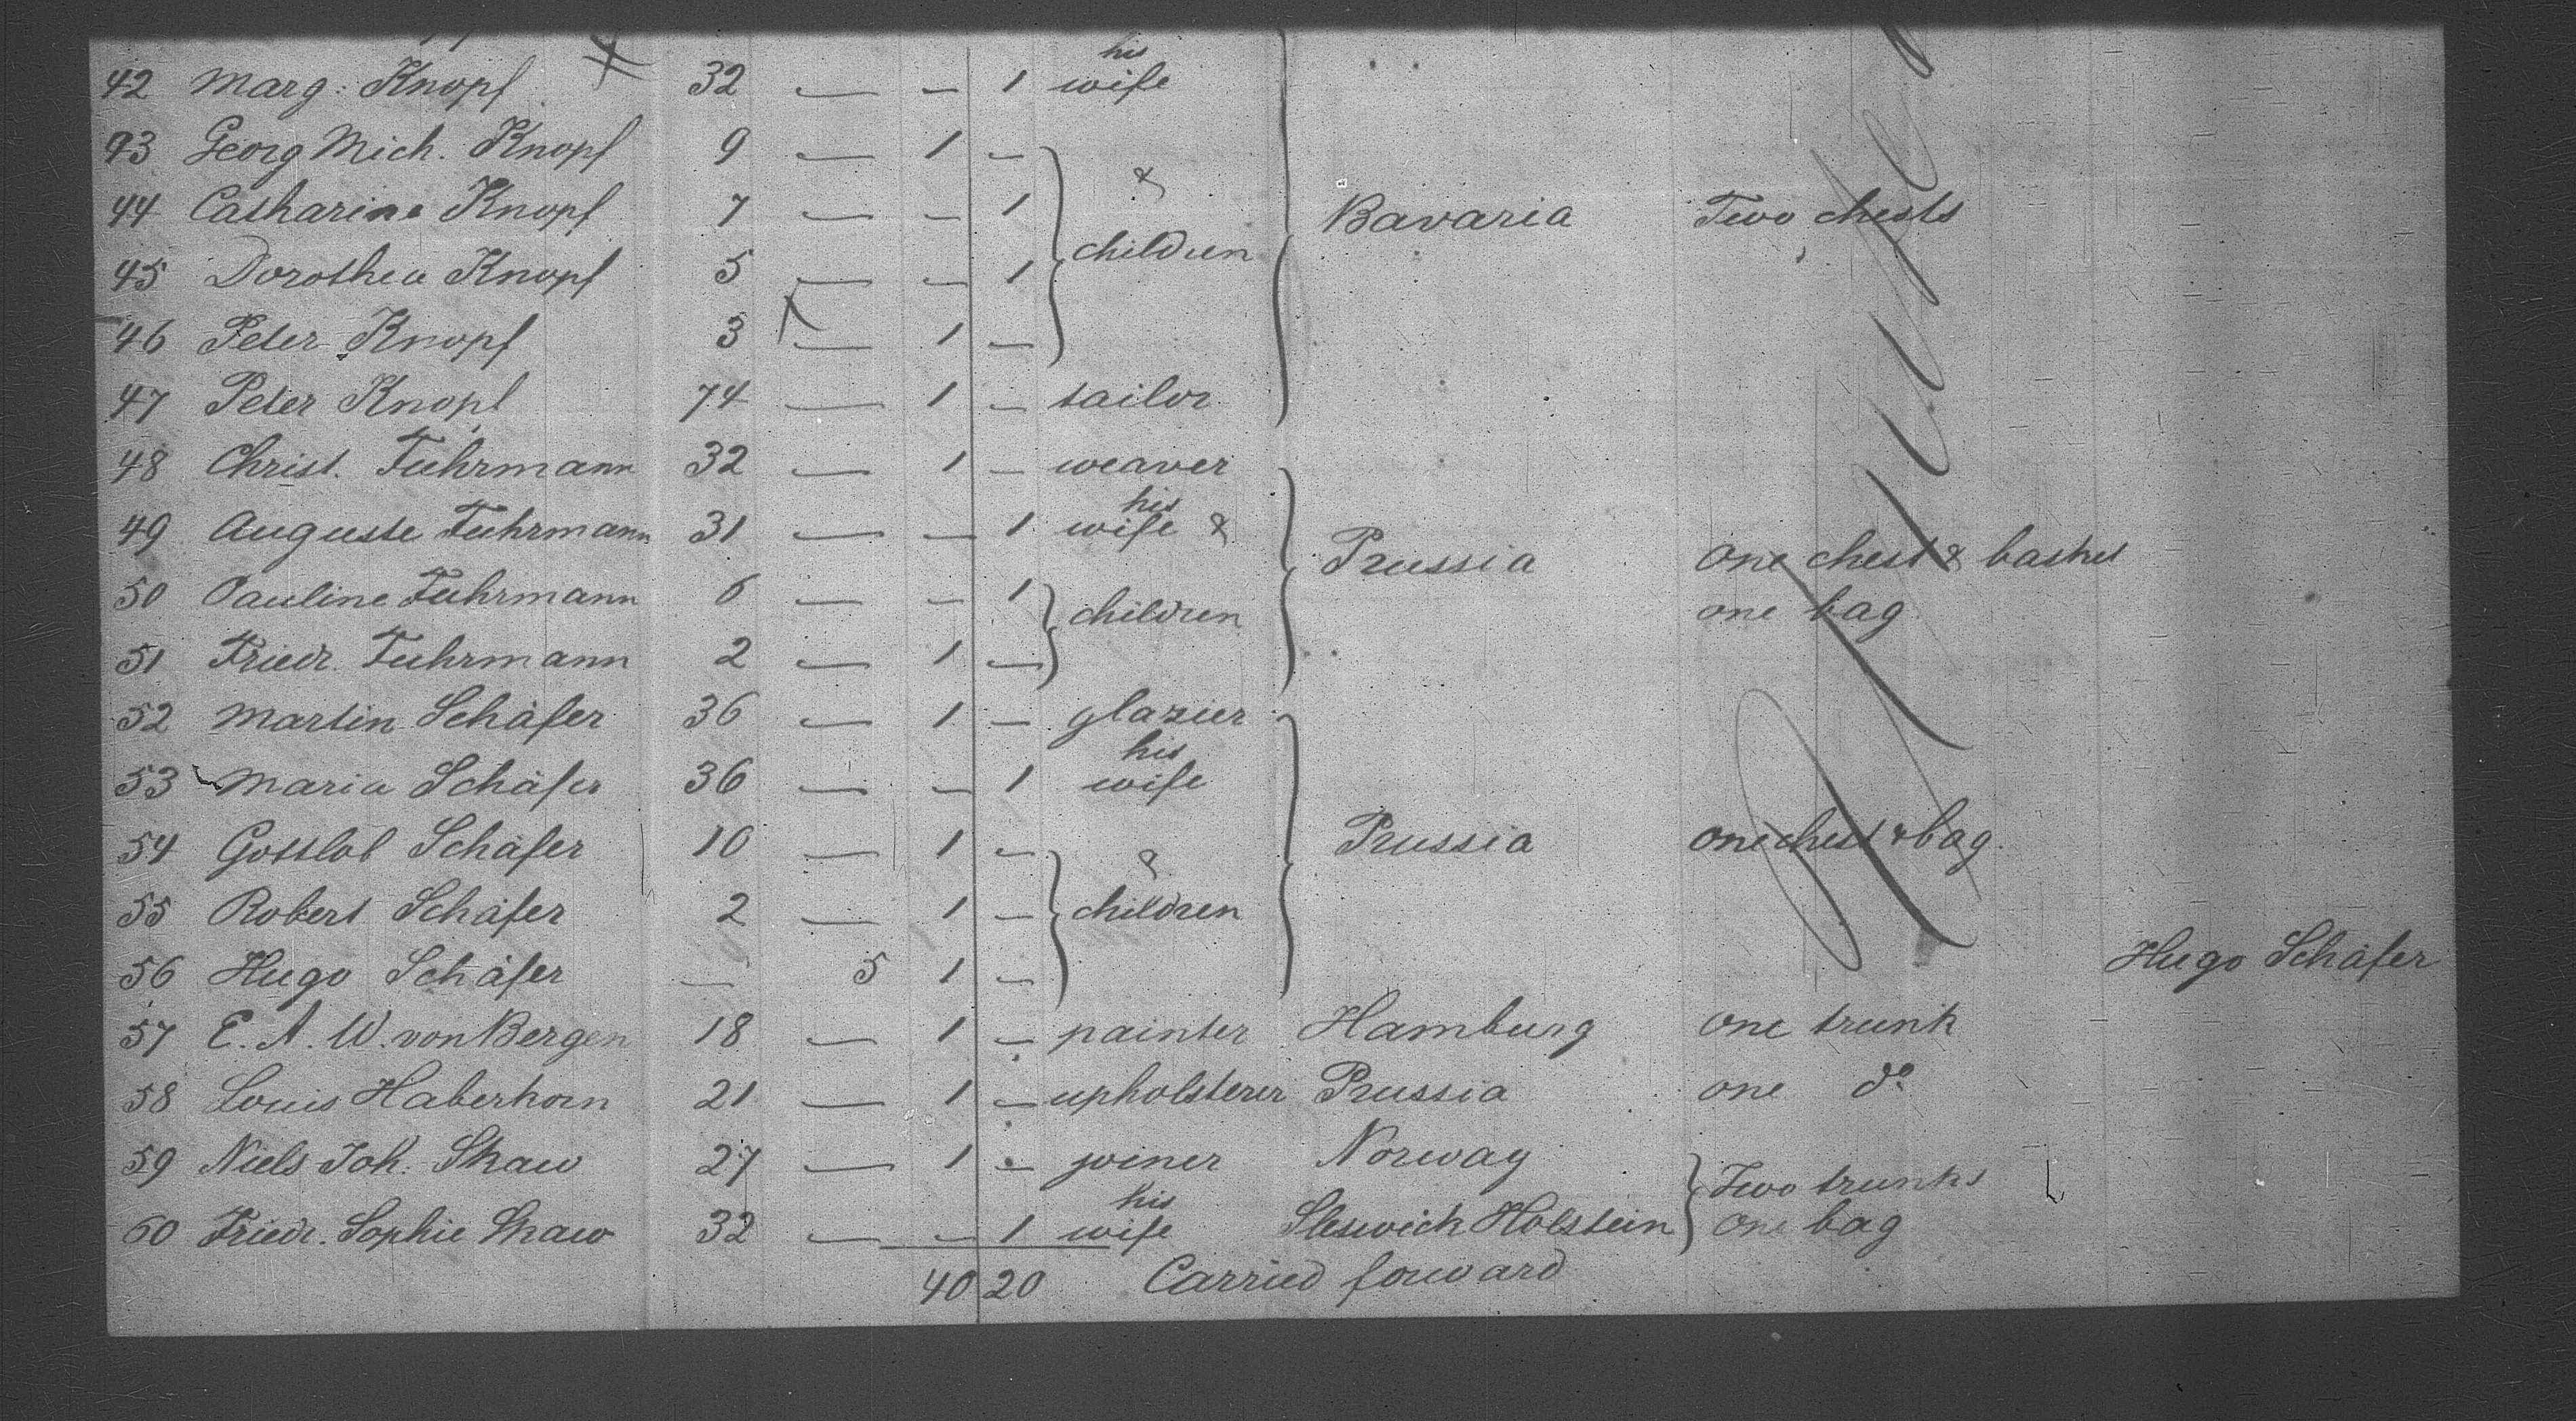 42 Marg: Knopf 32 — — 1 his wife
43 Georg Mich. Knopf 9 — 1 —
44 Catharine Knopf 7 — — 1 & children Bavaria Two chests
45 Dorothea Knopf 5 — — 1
46 Peter Knopf 3 — 1 —
47 Peter Knopf 74 — 1 — tailor
48 Christ. Fuhrmann 32 — 1 — weaver
49 Auguste Fuhrmann 31 — — 1 his wife & Prussia one chest & basket
50 Pauline Fuhrmann 6 — — 1 children one bag
51 Friedr. Fuhrmann 2 — 1 —
52 Martin Schäfer 36 — 1 — glazier
53 Maria Schäfer 36 — — 1 his wife
54 Gottlob Schäfer 10 — 1 — & Prussia one chest & bag
55 Robert Schäfer 2 — 1 — children
56 Hugo Schäfer — 5 1 — Hugo Schäfer
57 E. A. W. von Bergen 18 — 1 — painter Hamburg one trunk
58 Louis Haberhorn 21 — 1 — upholsterer Prussia one do
59 Niels Joh. Skaw 27 — 1 — joiner Norway Two trunks
60 Friedr. Sophie Skaw 32 — — 1 his wife Sleswick Holstein one bag
40 20 Carried forward